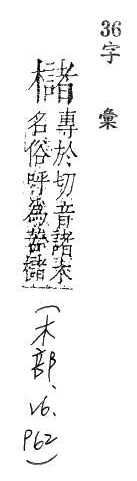 36字彙
櫧
專於切音諸木
名俗呼為苦櫧
(木部、v6、
P62)